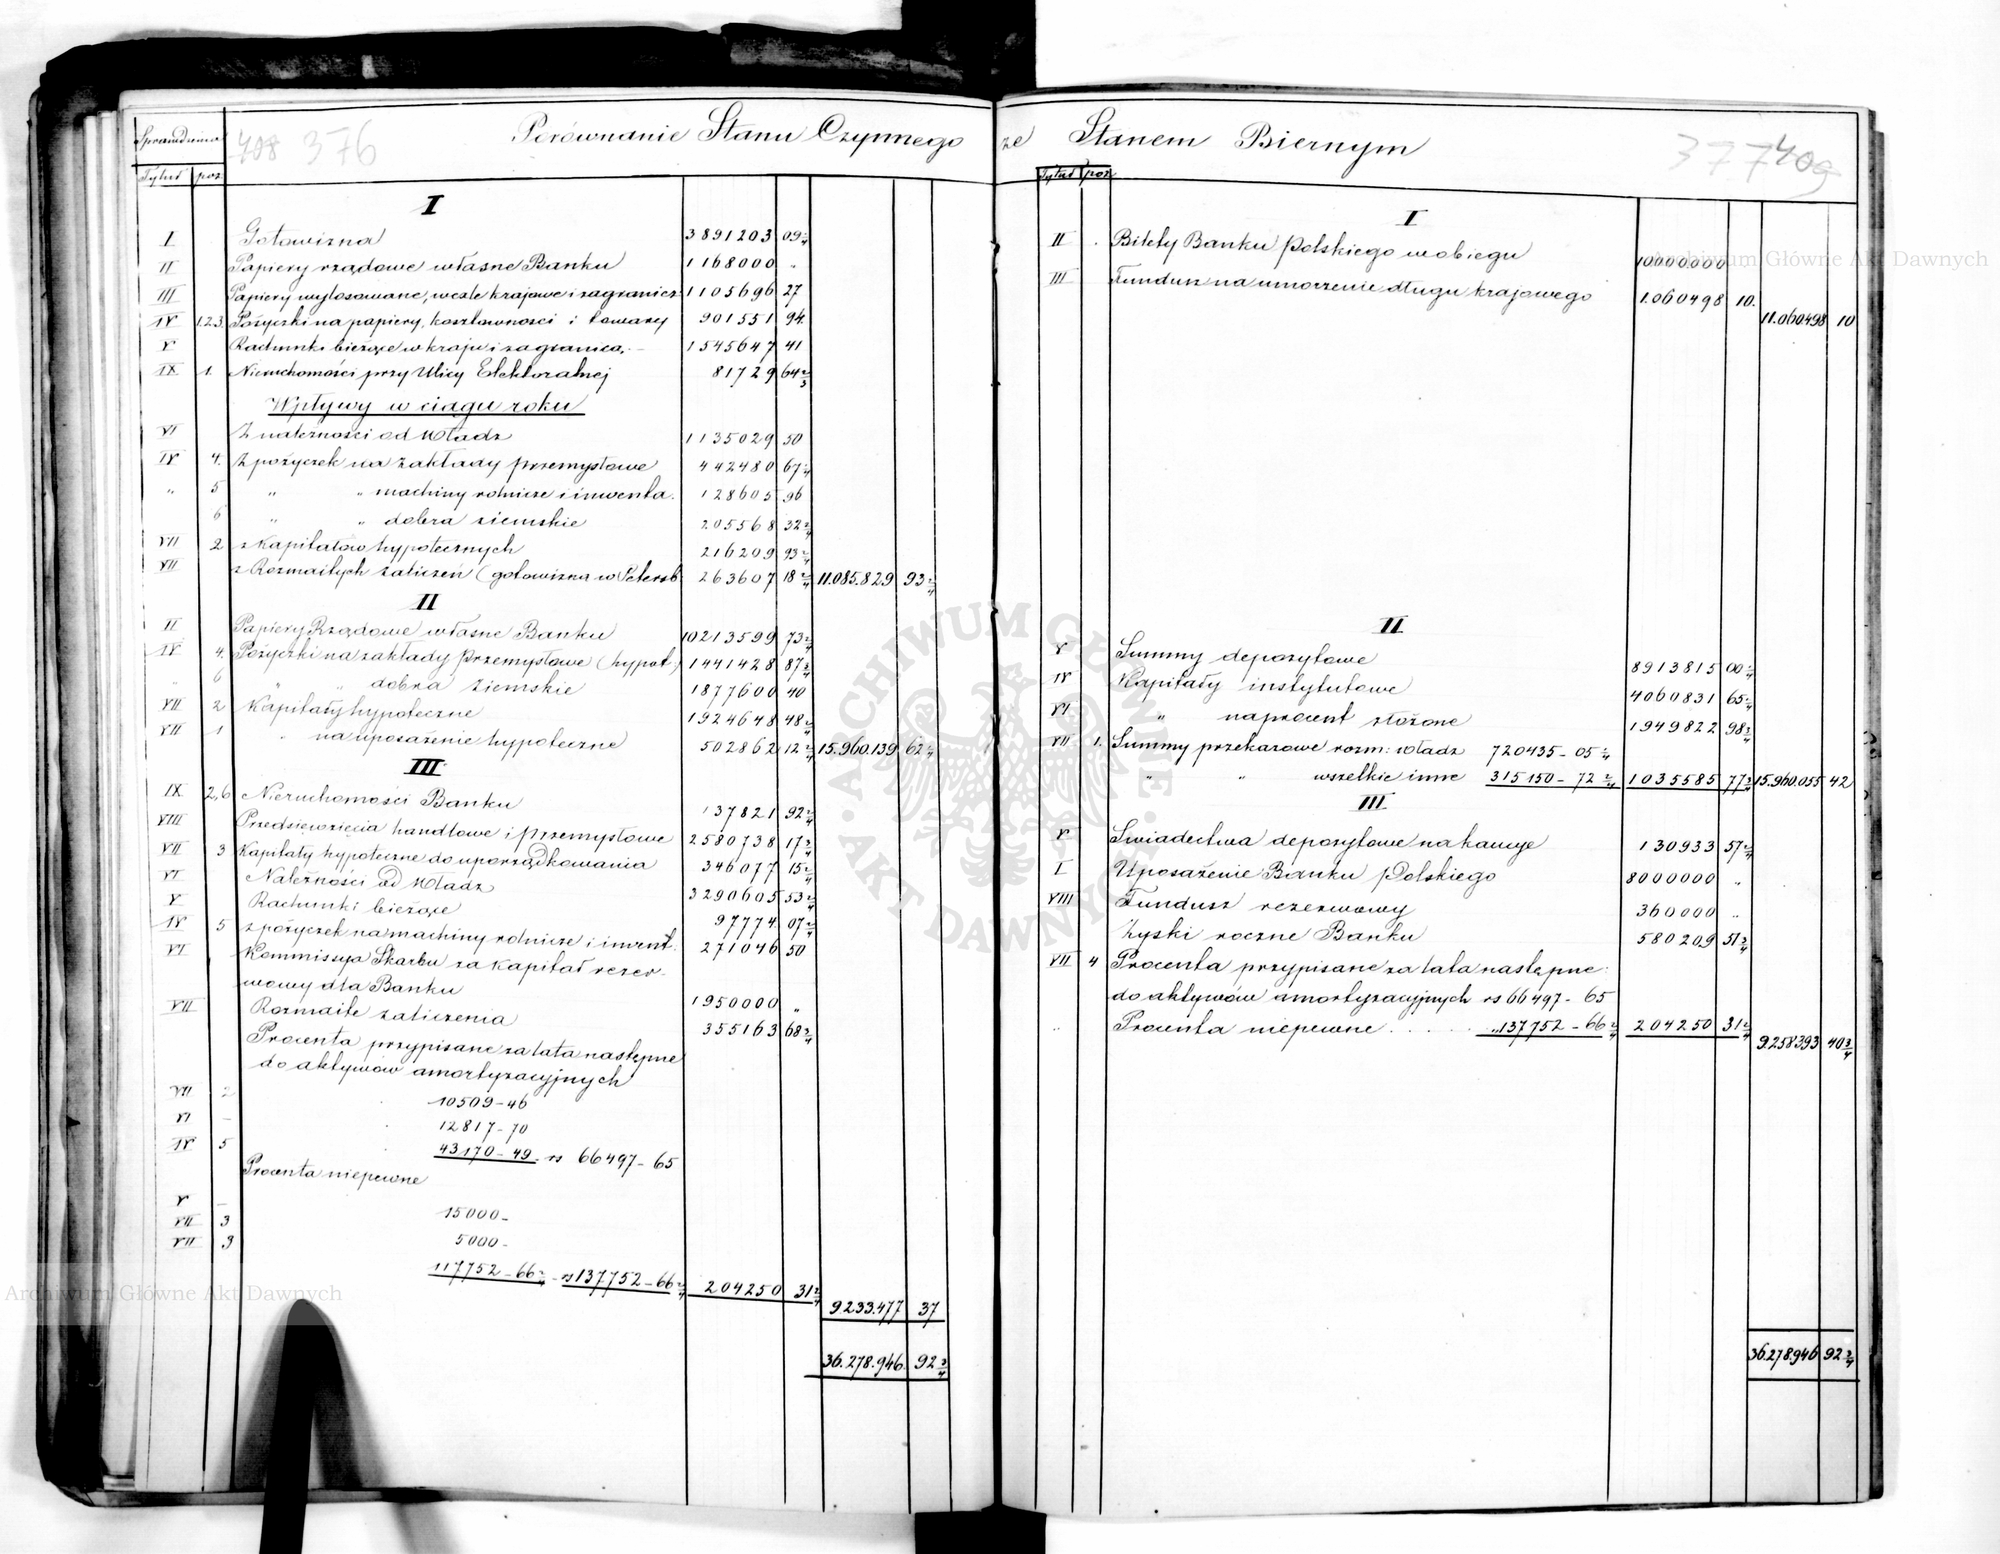 Porównanie Stanu Czynnego ze Stanem Biernym
Sprawdzenia
408 376
Tytuł poz
I
I Gotowizna 3891203 09 2/4
II Papiery rządowe własne Banku 1168000 "
III Papiery wylosowane, wexle krajowe i zagranicz. 1105696 27
IV 1.2.3. Pożyczki na papiery, kosztowności i towary 901551 94
V Rachunki bieżące w kraju i zagranicą 1545647 41
IX 1. Nieruchomości przy Ulicy Elektoralnej 81729 64 2/3
Wpływy w ciągu roku
VI Z należności od Władz 1135029 50
IV 4. Z pożyczek na zakłady przemysłowe 442480 67 2/4
" 5 " " machiny rolnicze i inwenta. 128605 96
6 " " dobra ziemskie 205568 32 2/4
VII 2 z Kapitałów hypotecznych 216209 93 2/4
VII z Rozmaitych zaliczeń (gotowizna w Petersb. 263607 18 2/4 11.085.829 93 2/4
II
II Papiery Rządowe własne Banku 10213599 73 2/4
IV 4. Pożyczki na zakłady przemysłowe (hypot.) 1441428 87 3/4
" 6 " " dobra ziemskie 1877600 40
VII 2 Kapitały hypoteczne 1924648 48 2/4
VII 1 " na uposażenie hypoteczne 502862 12 2/4 15.960.139 62 2/4
III
IX. 2,6 Nieruchomości Banku 137821 92 2/4
VIII Przedsięwzięcia handlowe i przemysłowe 2580738 17 3/4
VII 3 Kapitały hypoteczne do uporządkowania 346077 15 2/4
VI Należności od Władz 3290605 53 2/4
V Rachunki bieżące 97774 07 2/4
IV 5 z pożyczek na machiny rolnicze i invent. 271046 50
VI Kommissya Skarbu za kapitał rezer-
wowy dla Banku 1950000 "
VII Rozmaite zaliczenia 355163 68 2/4
Procenta przypisane za lata następne
do aktywów amortyzacyjnych
VII 2 10509-46
VI - 12817-70
IV 5 43170-49 rs 66497-65
Procenta niepewne
V - 15000-
VII 3 5000-
VII 3 117752-66 2/4 rs 137752-66 2/4 204250 31 2/4
9.233.477 37
36.278.946. 92 3/4
377 409
Tytuł poz
I
II . Bilety Banku Polskiego w obiegu 10000000
III Fundusz na umorzenie długu krajowego 1.060498 10.
11.060.498 10
II
V Summy depozytowe 8913815 00 2/4
IV Kapitały instytutowe 4060831 65 2/4
VI " na procent złożone 1949822 98 3/4
VII 1. Summy przekazowe rozm: Władz 720435-05 2/4
" " wszelkie inne 315150-72 2/4 1035585 77 3/4 15.960.055 42
III
V Świadectwa depozytowe na kaucye 130933 57 2/4
I Uposażenie Banku Polskiego 8000000 "
VIII Fundusz rezerwowy 360000 "
Zyski roczne Banku 580209 51 3/4
VII 4 Procenta przypisane za lata następne:
do aktywów amortyzacyjnych rs 66497-65
" Procenta niepewne . . . . . " 137752-66 2/4 204250 31 2/4
9.258.393 40 3/4
36.278.946 92 3/4
Archiwum Główne Akt Dawnych
ARCHIWUM GŁÓWNE
AKT DAWNYCH
Archiwum Główne Akt Dawnych